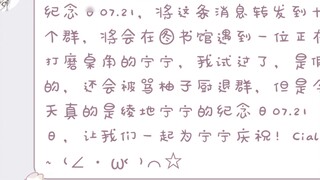 纪念日07.21，将这条消息转发到十
个群，将会在图书馆遇到一位正在
打磨桌角的宁宁，我试过了，是假
的，还会被骂柚子厨退群，但是今
天真的是绫地宁宁的纪念日07.21
日，让我们一起为宁宁庆祝！Cial
～(∠・ω< )⌒☆